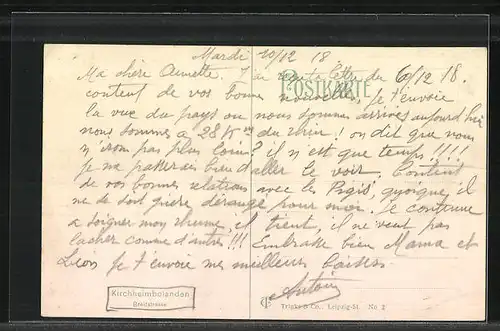 Mardi 10/12 18
Ma chère Annette. J'ai reçu ta lettre du 6/12 18.
POSTKARTE
content de vos bonne nouvelles, je t'envoie
la vue du pays ou nous sommes arrivés aujourd'hui
nous sommes a 28 Km du rhin! on dit que nous
n'irons pas plus loin? il n'est que temps!!!!
je me passerais bien d'aller le voir. Content
de vos bonnes relations avec les quoique il
ne se soit guère dérangé pour moi. Je continue
a soigner mon rhume, il tient, il ne veut pas
lacher comme d'autres!!! Embrasse bien Mama et
Leon je t'envoie mes meilleurs baisers
Antoine
Kirchheimbolanden
Breidstrasse
Trinks & Co., Leipzig-St. No 2